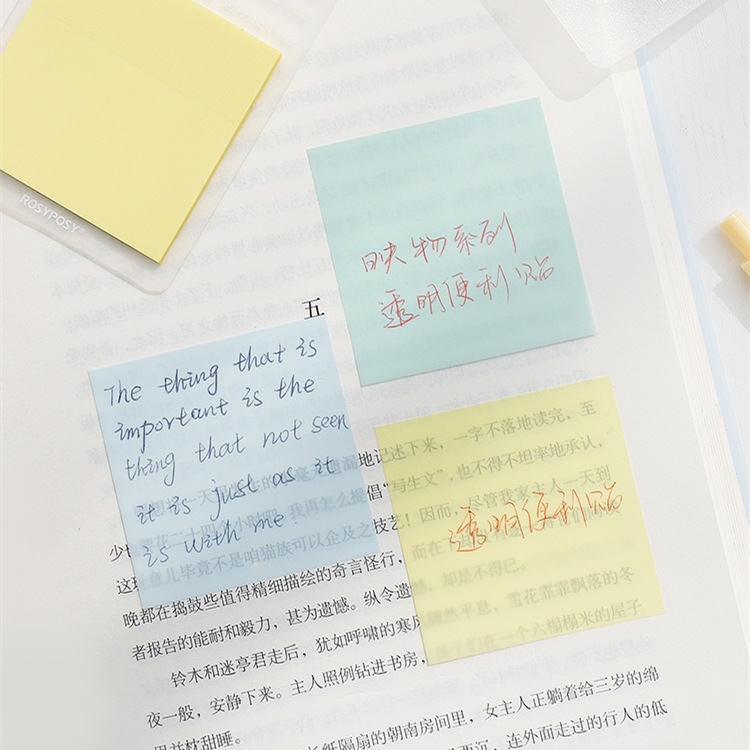 ROSYPOSY
映物系列
透明便利贴
五
The thing that is
important is the
thing that not seen
it is just as it
is with me.
透明便利贴
地记述下来，一字不落地读完，至
倡“写生文”，也不得不坦率地承认，
技艺！因而，尽管我家主人一天到
这 意儿毕竟不是咱猫族可以企及之
晚都在捣鼓些值得精细描绘的奇言怪行，
却是不得已。
者报告的能耐和毅力，甚为遗憾。纵令遗
铃木和迷亭君走后，犹如呼啸的寒 骤然平息，雪花霏霏飘落的冬
夜一般，安静下来。主人照例钻进书房， 孩子们在一个六榻榻米的屋子
朝南房间里，女主人正躺着给三岁的绵
枕甜睡。
连外面走过的行人的低